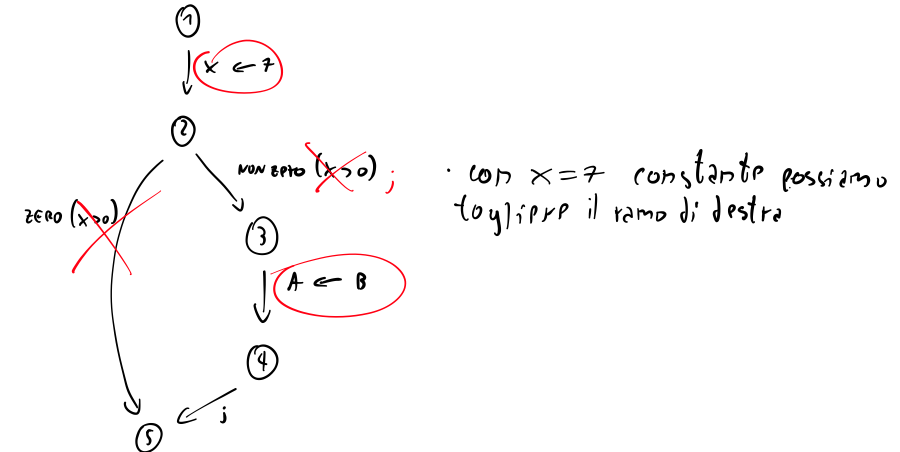 1
x ← 7
2
NON ZERO (x>0) ;
ZERO (x>0)
3
A ← B
4
;
5
· con x=7 constante possiamo
togliere il ramo di destra